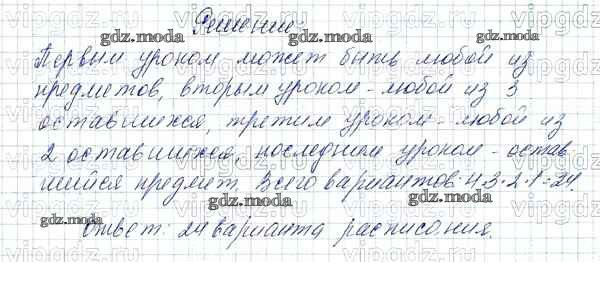 Решение:
Первым уроком может быть любой из
предметов, вторым уроком - любой из 3
оставшихся, третим уроком - любой из
2 оставшихся, последним уроком - остав
шийся предмет. Всего вариантов: 4·3·2·1=24.
Ответ: 24 варианта расписания.